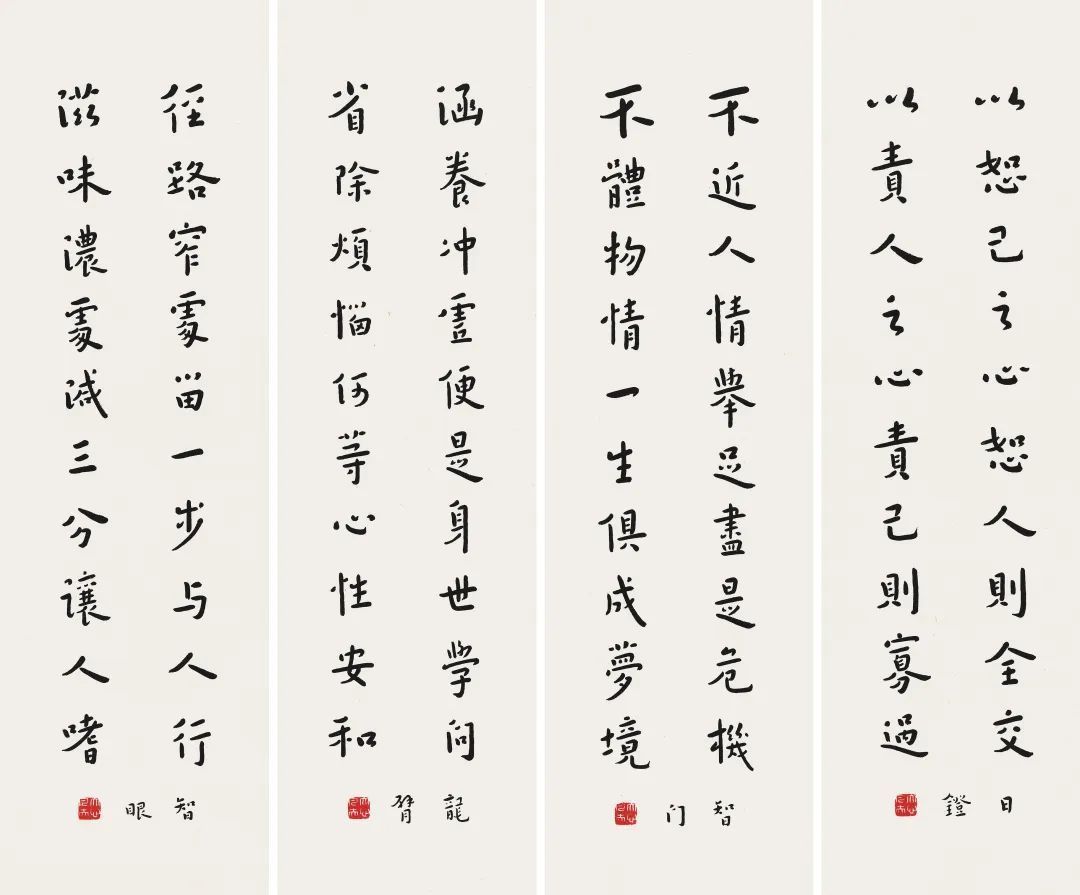 以恕己之心恕人則全交
以責人之心責己則寡過
日鐙
不近人情舉足盡是危機
不體物情一生俱成夢境
智门
涵養冲虛便是身世學问
省除煩惱何等心性安和
龍臂
径路窄處畄一步与人行
滋味濃處減三分讓人嗜
智眼